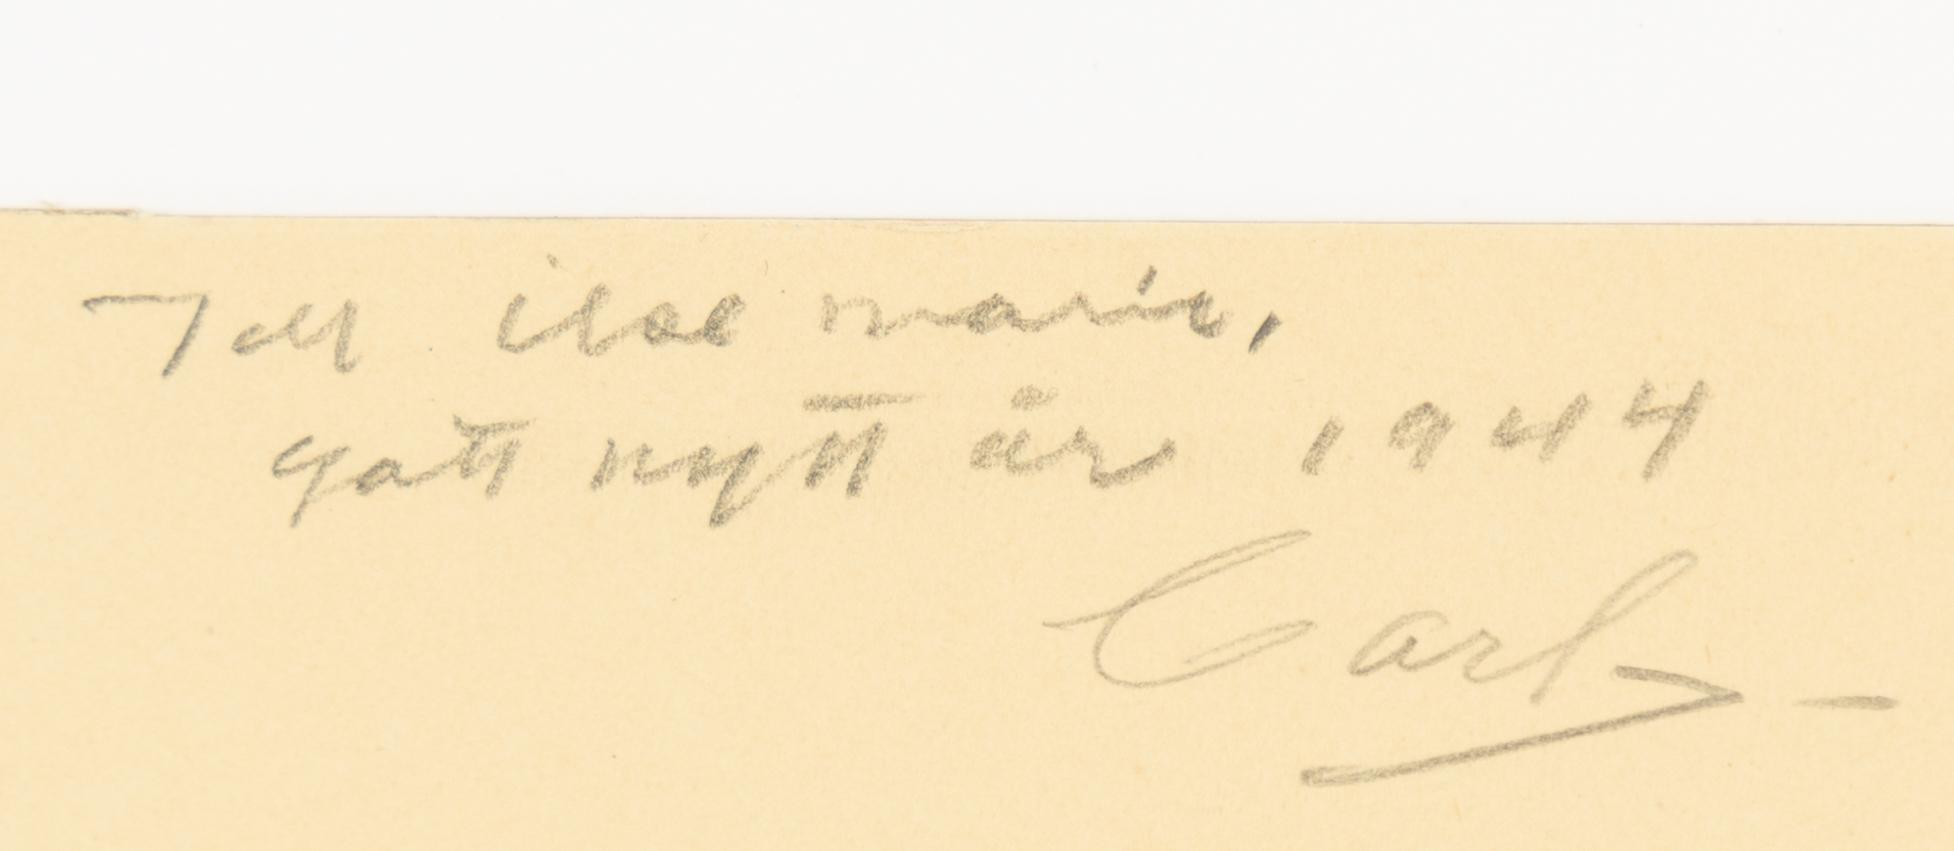 Till ilse marie,
gott nytt år 1944
Carl –